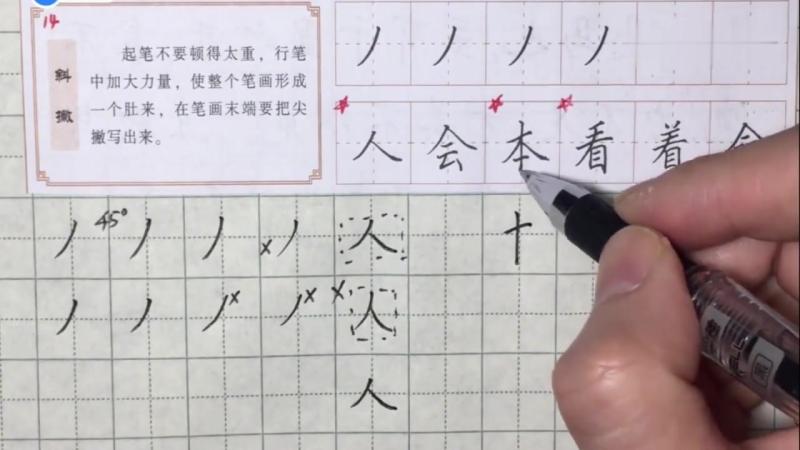 14
斜撇
起笔不要顿得太重，行笔
中加大力量，使整个笔画形成
一个肚来，在笔画末端要把尖
撇写出来。
丿 丿 丿 丿
人 会 本 看 着
丿 45° 丿 丿 x 丿 人 十
丿 丿 丿 x 丿 x x 人
人